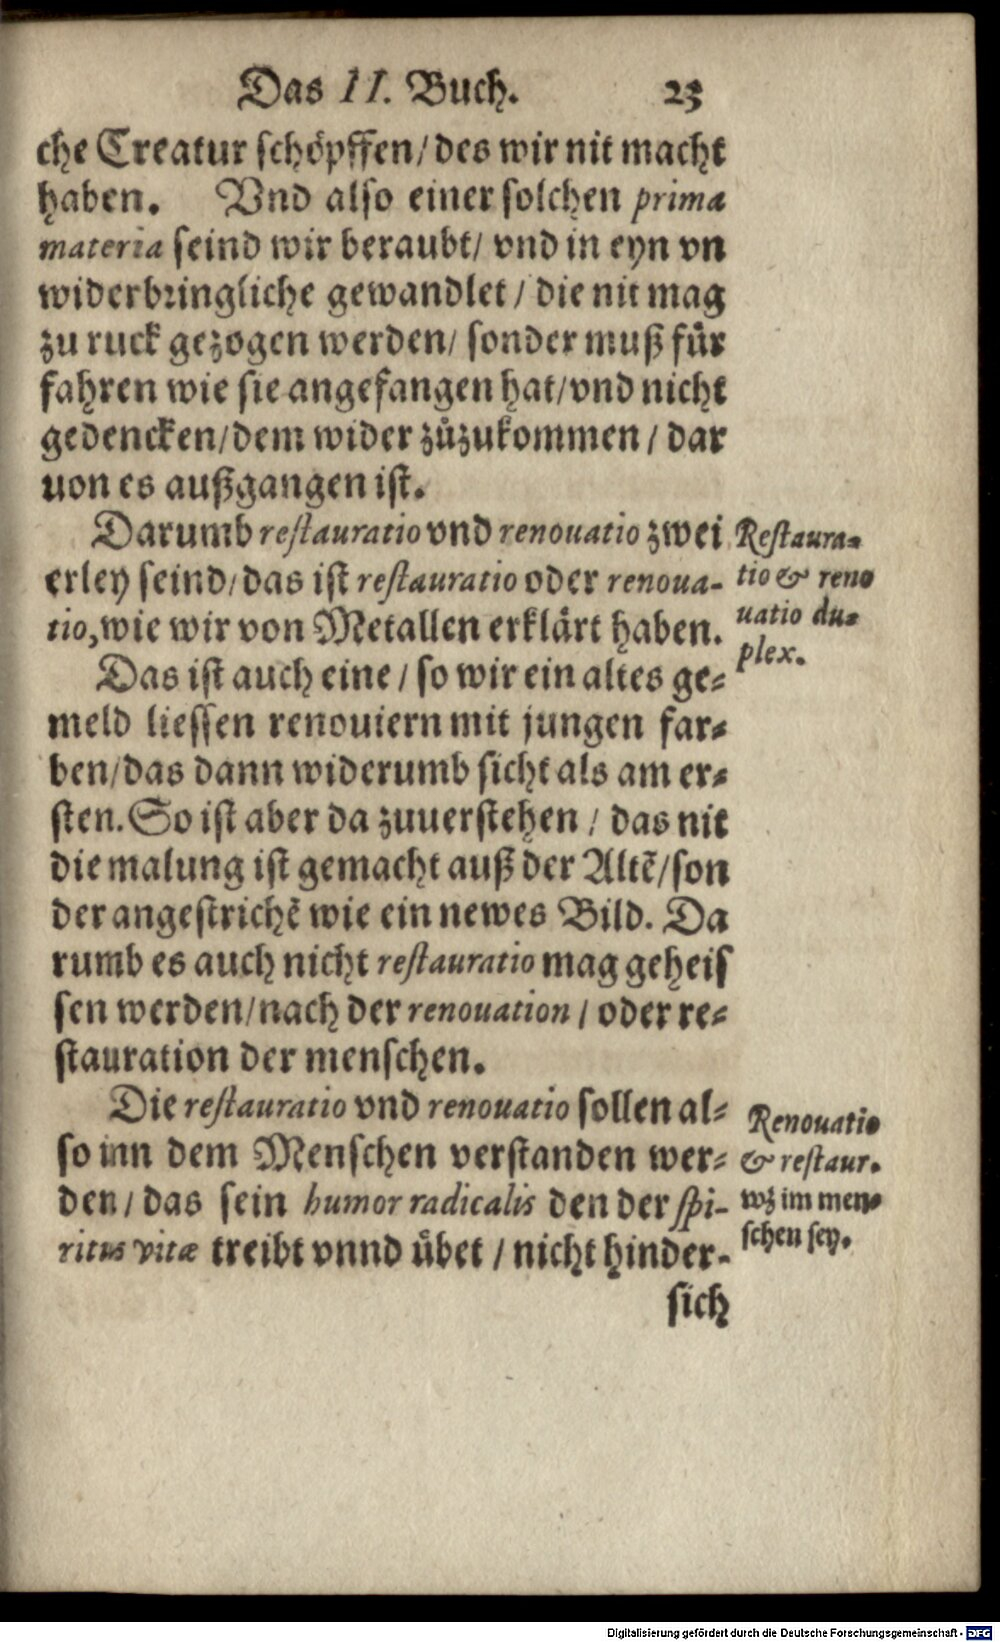 Das II. Buch. 23
che Creatur schöpffen/des wir nit macht
haben. Vnd also einer solchen prima
materia seind wir beraubt/ vnd in eyn vn
widerbringliche gewandlet / die nit mag
zu ruck gezogen werden/ sonder muß fůr
fahren wie sie angefangen hat/vnd nicht
gedencken/dem wider zůzukommen / dar
uon es außgangen ist.
Darumb restauratio vnd renouatio zwei
erley seind/das ist restauratio oder renoua-
tio,wie wir von Metallen erklärt haben.
Restaura-
tio & reno
uatio du-
plex.
Das ist auch eine / so wir ein altes ge-
meld liessen renouiern mit jungen far-
ben/das dann widerumb sicht als am er-
sten. So ist aber da zuuerstehen / das nit
die malung ist gemacht auß der Altẽ/son
der angestrichẽ wie ein newes Bild. Da
rumb es auch nicht restauratio mag geheis
sen werden/nach der renouation / oder re-
stauration der menschen.
Die restauratio vnd renouatio sollen al-
so inn dem Menschen verstanden wer-
den/ das sein humor radicalis den der spi-
ritus vitæ treibt vnnd ůbet / nicht hinder-
Renouatio
& restaur.
wz im men-
schen sey.
sich
Digitalisierung gefördert durch die Deutsche Forschungsgemeinschaft - DFG